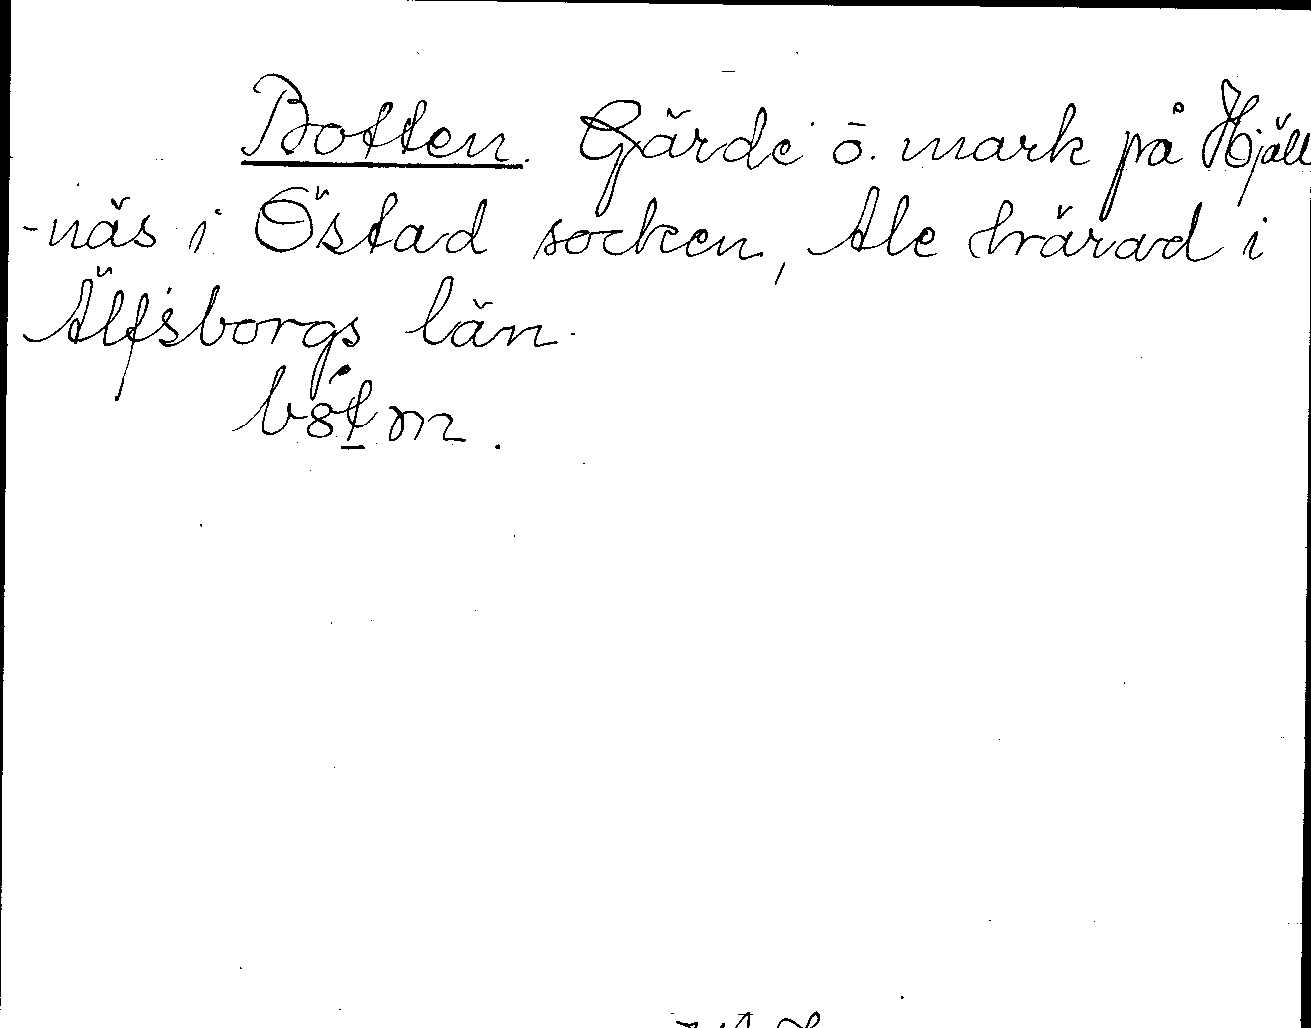 Botten. Gärde o. mark på Hjäll
-näs i Östad socken, Ale härad i
Älfsborgs län.